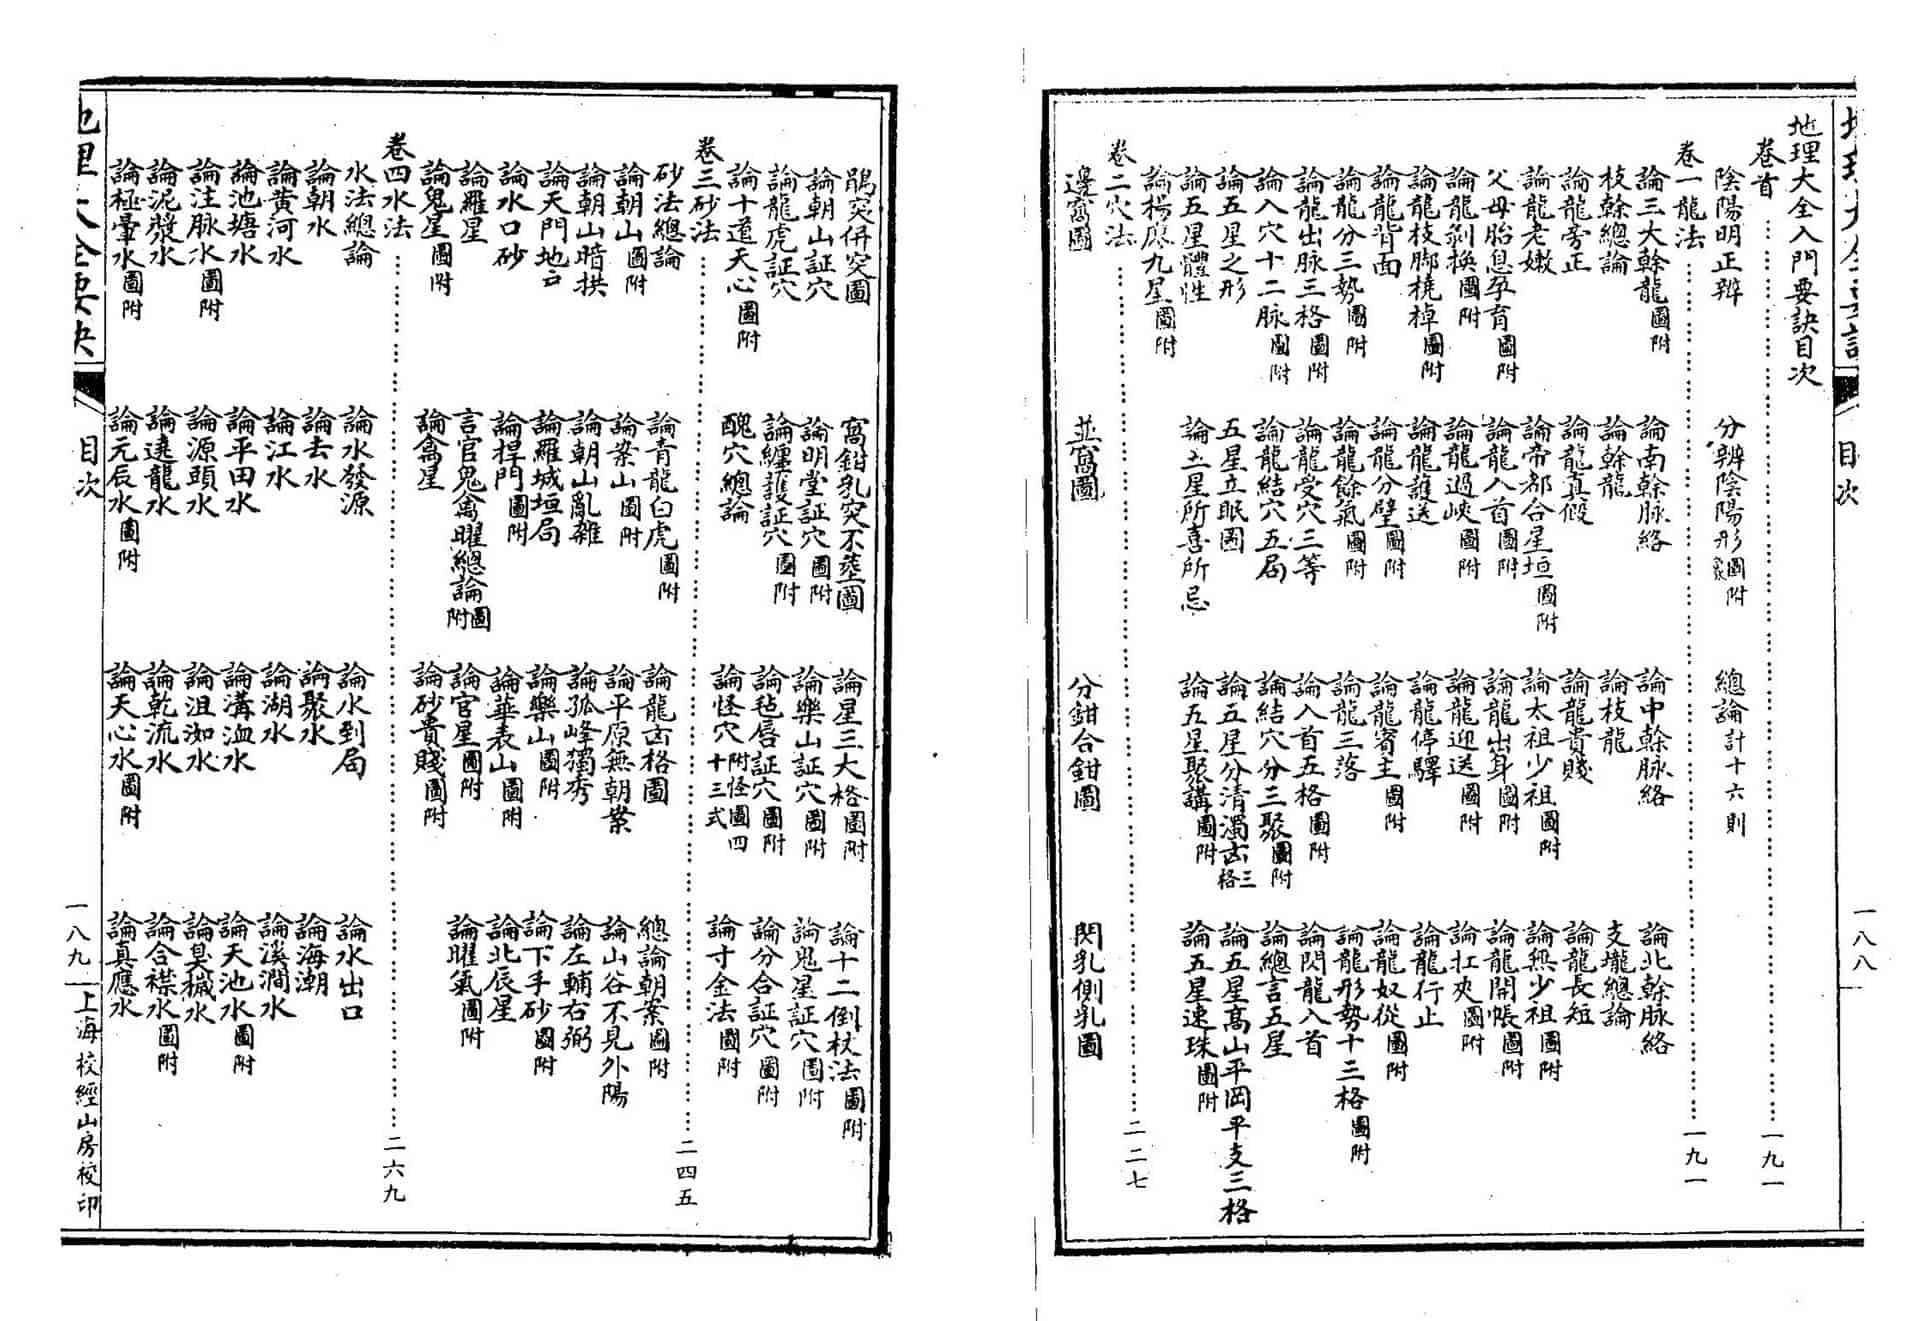 地理大全要訣
目次
一八八
地理大全入門要訣目次
卷首……一九一
陰陽明正辨
分辨陰陽形象圖附
總論計十六則
卷一龍法……一九一
論三大榦龍圖附
論南榦脉絡
論中榦脉絡
論北榦脉絡
枝榦總論
論榦龍
論枝龍
支壠總論
論龍旁正
論龍真假
論龍貴賤
論龍長短
論龍老嫩
論帝都合星垣圖附
論太祖少祖圖附
論無少祖圖附
父母胎息孕育圖附
論龍入首圖附
論龍出身圖附
論龍開帳圖附
論龍剝換圖附
論龍過峽圖附
論龍迎送圖附
論扛夾圖附
論龍枝脚橈棹圖附
論龍護送
論龍停驛
論龍行止
論龍背面
論龍分劈圖附
論龍賓主圖附
論龍奴從圖附
論龍分三勢圖附
論龍餘氣圖附
論龍三落
論龍形勢十三格圖附
論龍出脉三格圖附
論龍受穴三等
論入首五格圖附
論閃龍入首
論入穴十二脉圖附
論龍結穴五局
論結穴分三聚圖附
論總言五星
論五星之形
五星立眠圖
論五星分清濁凶三格
論五星高山平岡平支三格
論五星體性
論五星所喜所忌
論五星聚講圖附
論五星連珠圖附
論楊廖九星圖附
卷二穴法……二二七
邊窩圖
並窩圖
分鉗合鉗圖
閃乳側乳圖
鶻突併突圖
窩鉗乳突不葬圖
論星三大格圖附
論十二倒杖法圖附
論朝山証穴
論明堂証穴圖附
論樂山証穴圖附
論鬼星証穴圖附
論龍虎証穴
論纏護証穴圖附
論毡唇証穴圖附
論分合証穴圖附
論十道天心圖附
醜穴總論
論怪穴附怪圖四十三式
論寸金法圖附
卷三砂法……二四五
砂法總論
論青龍白虎圖附
論龍凶格圖
總論朝案圖附
論朝山圖附
論案山圖附
論平原無朝案
論山谷不見外陽
論朝山暗拱
論朝山亂雜
論孤峰獨秀
論左輔右弼
論天門地户
論羅城垣局
論樂山圖附
論下手砂圖附
論水口砂
論捍門圖附
論華表山圖附
論北辰星
論羅星
言官鬼禽曜總論圖附
論官星圖附
論曜氣圖附
論鬼星圖附
論禽星
論砂貴賤圖附
卷四水法……二六九
水法總論
論水發源
論水到局
論水出口
論朝水
論去水
論聚水
論海潮
論黃河水
論江水
論湖水
論溪澗水
論池塘水
論平田水
論溝洫水
論天池水圖附
論注脉水圖附
論源頭水
論沮洳水
論臭穢水
論泥漿水
論遶龍水
論乾流水
論合襟水圖附
論極暈水圖附
論元辰水圖附
論天心水圖附
論真應水
地理大全要訣
目次
一八九
上海校經山房校印